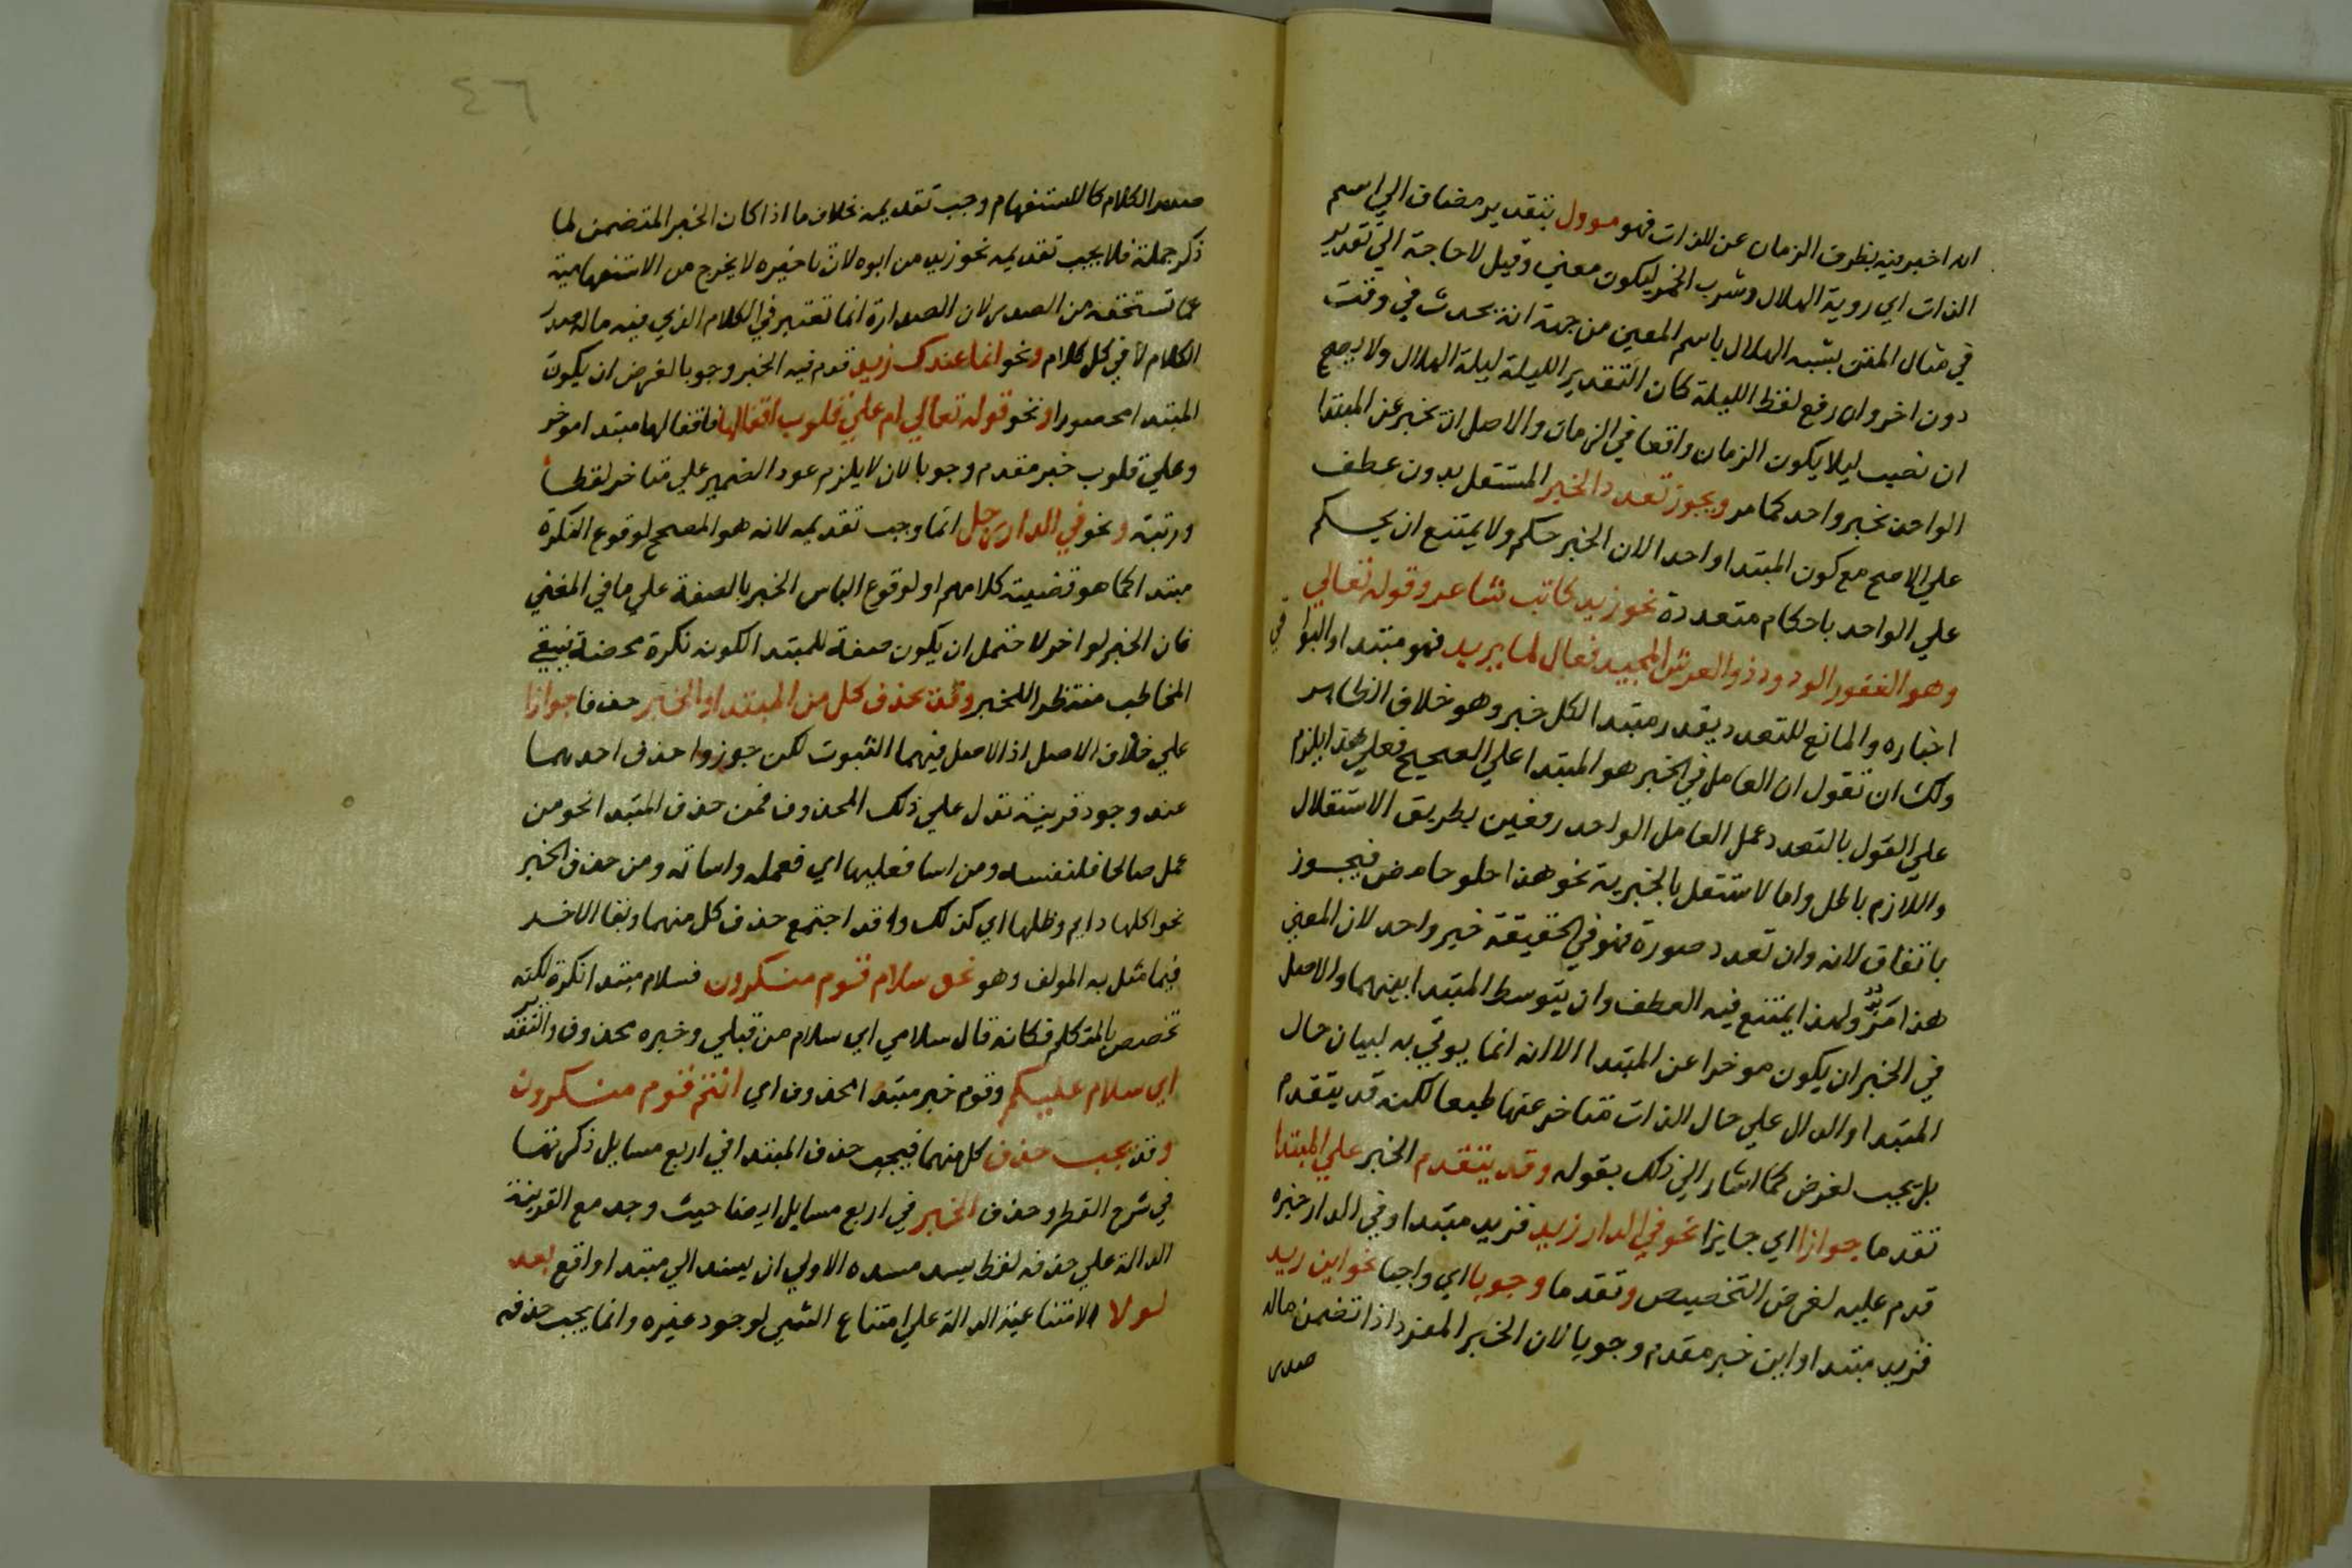 ان اخبر فيه بظرف الزمان عن الذات فهو موول بتقدير مضاف الي اسم
الذات اي روية الهلال وشرب الخمر ليكون معني وقيل لا حاجة الي تقدير
في مثال المتن بشبه الهلال باسم المعين من جهة انه يحدث في وقت
دون اخر وان رفع لفظ الليلة كان التقدير الليلة ليلة الهلال ولا يصح
ان نصب ليلا يكون الزمان واقعا في الزمان والاصل ان يخبر عن المبتدا
الواحد بخبر واحد كما مر ويجوز تعدد الخبر المستقل بدون عطف
علي الاصح مع كون المبتدا واحدا لان الخبر حكم ولا يمتنع ان يحكم
علي الواحد باحكام متعددة نحو زيد كاتب شاعر وقوله تعالي
وهو الغفور الودود ذو العرش المجيد فعال لما يريد فهو مبتدا والبواقي
اخباره والمانع للتعدد يقدر مبتدا لكل خبر وهو خلاف الظاهر
ولك ان تقول ان العامل في الخبر هو المبتدا علي الصحيح فعلي هذا يلزم
علي القول بالتعدد عمل العامل الواحد رفعين بطريق الاستقلال
واللازم باطل واما لا ستقل بالخبرية نحو هذا حلو حامض فيجوز
باتفاق لانه وان تعدد صورة فهو في الحقيقة خبر واحد لان المعني
هذا مز ولهذا يمتنع فيه العطف وان يتوسط المبتدا بينهما والاصل
في الخبر ان يكون موخرا عن المبتدا الا انه انما يوتي به لبيان حال
المبتدا والدال علي حال الذات متاخر عنها طبعا لكنه قد يتقدم
بل يجب لغرض كما اشار الي ذلك بقوله وقد يتقدم الخبر علي المبتدا
تقدما جوازا اي جايزا نحو في الدار زيد فزيد مبتدا وفي الدار خبره
قدم عليه لغرض التخصيص وتقدما وجوبا اي واجبا نحو اين زيد
فزيد مبتدا واين خبر مقدم وجوبا لان الخبر المفرد اذا تضمن ماله
صدر
٤٦
صدر الكلام كالاستفهام وجب تقديمه بخلاف ما اذا كان الخبر المتضمن لما
ذكر جملة فلا يجب تقديمه نحو زيد من ابوه لان تاخيره لا يخرج من الاستفهامية
عما تستحقه من الصدر لان الصدارة انما تعتبر في الكلام الذي فيه ماله صدر
الكلام لا في كل كلام ونحو انما عندك زيد قدم فيه الخبر وجوبا لغرض ان يكون
المبتدا محصورا ونحو قوله تعالي ام علي قلوب اقفالها فاقفالها مبتدا موخر
وعلي قلوب خبر مقدم وجوبا لان لا يلزم عود الضمير علي متاخر لفظا
ورتبة ونحو في الدار رجل انما وجب تقديمه لانه هو المصحح لوقوع النكرة
مبتدا كما هو قضية كلامهم او لوقوع الباس الخبر بالصفة علي ما في المغني
فان الخبر لو اخر لاحتمل ان يكون صفة للمبتدا لكونه نكرة محضة فيبقي
المخاطب منتظرا للخبر وقد يحذف كل من المبتدا والخبر حذفا جوازا
علي خلاف الاصل اذ الاصل فيهما الثبوت لكن جوزوا حذف احدهما
عند وجود قرينة تدل علي ذلك المحذوف فمن حذف المبتدا نحو من
عمل صالحا فلنفسه ومن اسا فعليها اي فعمله واساته ومن حذف الخبر
نحو اكلها دايم وظلها اي كذلك وقد اجتمع حذف كل منهما وبقا الاخر
فيما مثل به المولف وهو نحو سلام قوم منكرون فسلام مبتدا نكرة لكنه
تخصص بالمتكلم فكانه قال سلامي اي سلام من قبلي وخبره محذوف والتقدير
اي سلام عليكم وقوم خبر مبتدا محذوف اي انتم قوم منكرون
وقد يجب حذف كل منهما فيجب حذف المبتدا في اربع مسايل ذكرتها
في شرح القطر وحذف الخبر في اربع مسايل ايضا حيث وجد مع القرينة
الدالة علي حذفه لفظ يسد مسده الاولي ان يسند الي مبتدا واقع بعد
لولا الامتناعية الدالة علي امتناع الشي لوجود غيره وانما يجب حذفه